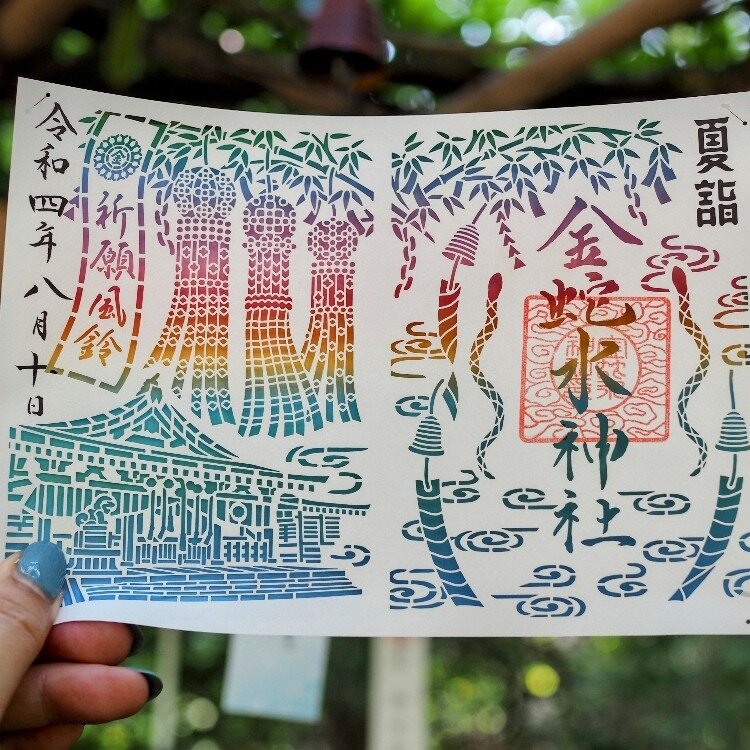 夏詣
金蛇水神社
金
祈願風鈴
令和四年八月十日